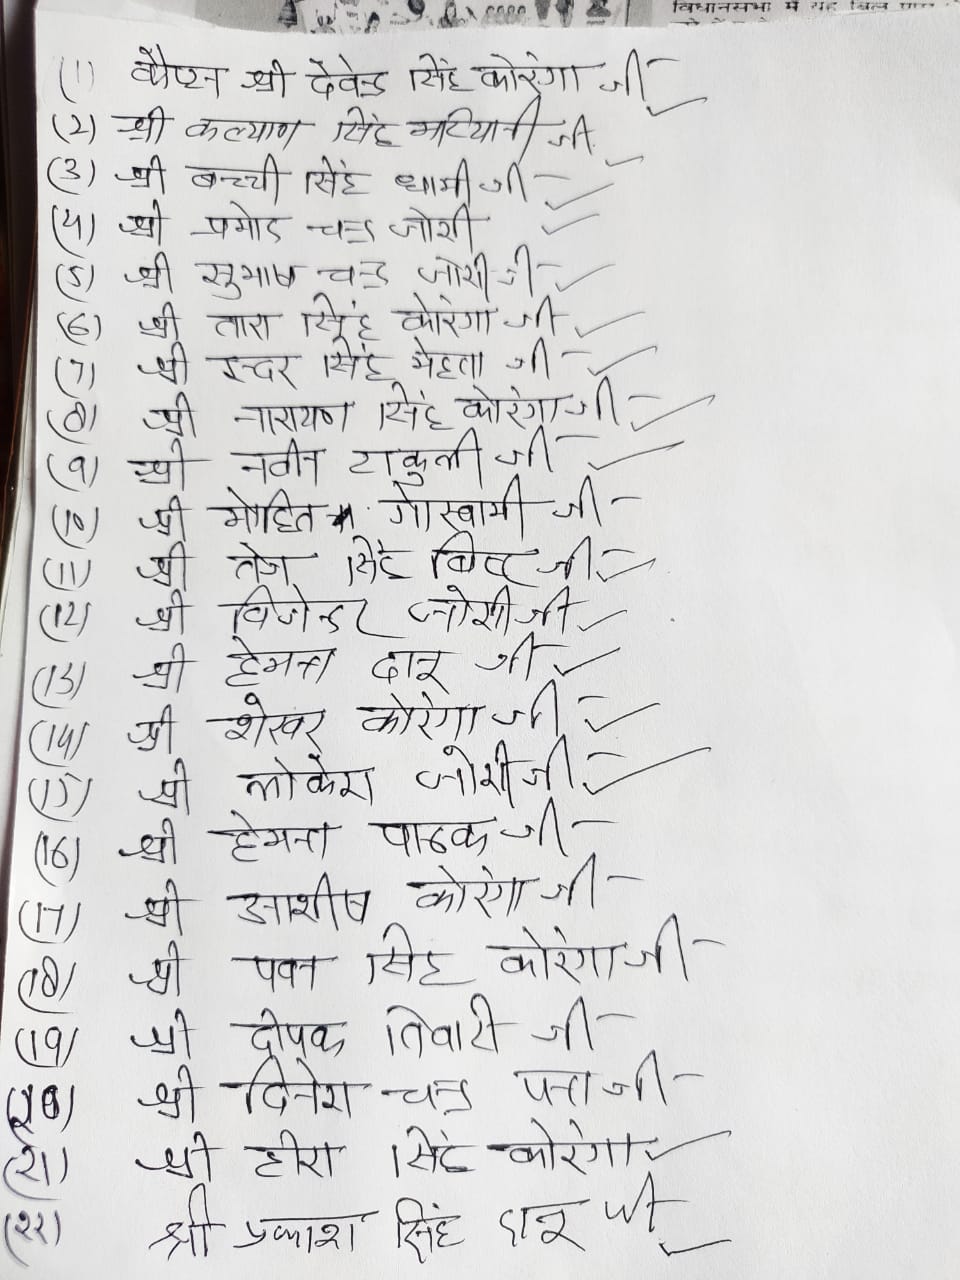 विधानसभा में यह बिल
(1) कैप्टन श्री देवेन्द्र सिंह कोरंगा जी
(2) श्री कल्याण सिंह भटियानी जी
(3) श्री बच्ची सिंह धामी जी
(4) श्री प्रमोद चन्द्र जोशी
(5) श्री सुभाष चन्द्र जोशी जी
(6) श्री तारा सिंह कोरंगा जी
(7) श्री इन्दर सिंह मेहता जी
(8) श्री नारायण सिंह कोरंगा जी
(9) श्री नवीन टाकुली जी
(10) श्री मोहित गोस्वामी जी
(11) श्री तेज सिंह बिष्ट जी
(12) श्री विजेन्दर जोशी जी
(13) श्री हेमन्त दानू जी
(14) श्री शेखर कोरंगा जी
(15) श्री लोकेश जोशी जी
(16) श्री हेमन्त पाठक जी
(17) श्री आशीष कोरंगा जी
(18) श्री पवन सिंह कोरंगा जी
(19) श्री दीपक तिवारी जी
(20) श्री दिनेश चन्द्र पन्त जी
(21) श्री हीरा सिंह कोरंगा
(22) श्री प्रकाश सिंह दानू जी